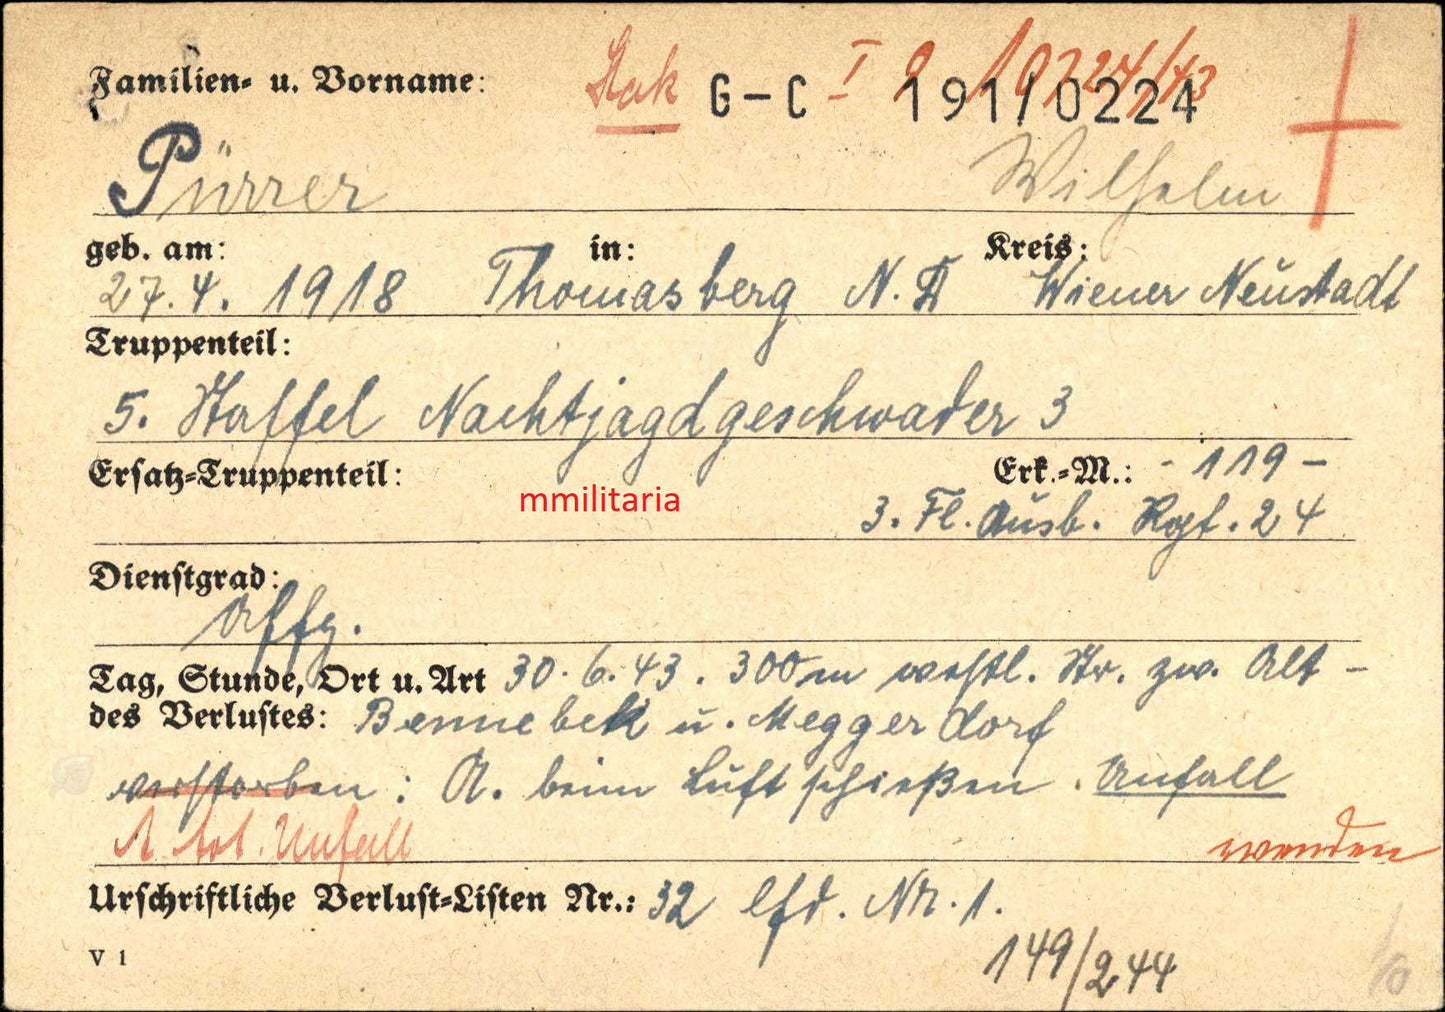 Familien- u. Vorname: Stak G-C 191/0224
Pürrer Wilhelm
geb. am: in: Kreis:
27.4.1918 Thomasberg N.D Wiener Neustadt
Truppenteil:
5. Staffel Nachtjagdgeschwader 3
Ersatz-Truppenteil: Erk.-M.: - 119 -
mmilitaria
3. Fl. Ausb. Rgt. 24
Dienstgrad:
Offz.
Tag, Stunde, Ort u. Art 30.6.43. 300 m westl. Str. zw. Alt-
des Verlustes: Bennebek u. Meggerdorf
verstorben: A. beim Luftschießen. Unfall
Unfall wenden
Urschriftliche Verlust-Listen Nr.: 32 lfd. Nr. 1.
V 1 149/244